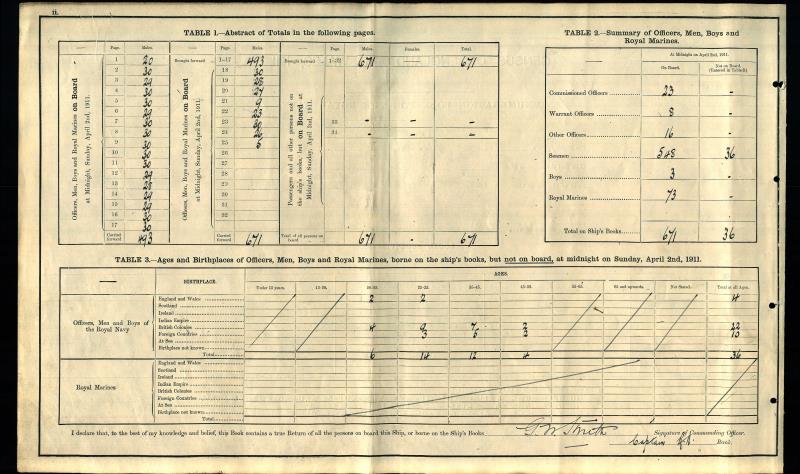 ii.
TABLE 1.—Abstract of Totals in the following pages.
Page. Males. Page. Males. Page. Males. Females. Total.
Officers, Men, Boys and Royal Marines on Board at Midnight, Sunday, April 2nd, 1911.
1 20
2 30
3 29
4 30
5 30
6 29
7 30
8 30
9 30
10 30
11 30
12 29
13 28
14 29
15 29
16 30
17 30
Carried forward 493
Officers, Men, Boys and Royal Marines on Board at Midnight, Sunday, April 2nd, 1911.
Brought forward 1—17 493
18 30
19 28
20 27
21 9
22 23
23 30
24 26
25 5
26
27
28
29
30
31
32
Carried forward 671
Passengers and all other persons not on the ship's books, but on Board at Midnight, Sunday, April 2nd, 1911.
Brought forward 1—32 671 671
33 – – –
34 – – –
Total of all persons on board 671 – 671
TABLE 2.—Summary of Officers, Men, Boys and
Royal Marines.
At Midnight on April 2nd, 1911.
On Board. Not on Board. (Entered in Table 3)
Commissioned Officers 23 –
Warrant Officers 8 –
Other Officers 16 –
Seamen 548 36
Boys 3 –
Royal Marines 73 –
Total on Ship's Books 671 36
TABLE 3.—Ages and Birthplaces of Officers, Men, Boys and Royal Marines, borne on the ship's books, but not on board, at midnight on Sunday, April 2nd, 1911.
BIRTHPLACE. AGES.
Under 15 years. Not Stated. Total at all Ages.
Officers, Men and Boys of the Royal Navy
England and Wales 2 2 4
Scotland
Ireland
Indian Empire
British Colonies 4 9 7 2 22
Foreign Countries 3 5 2 10
At Sea
Birthplace not known
Total 6 14 12 4 36
Royal Marines
England and Wales
Scotland
Ireland
Indian Empire
British Colonies
Foreign Countries
At Sea
Birthplace not known
Total
I declare that, to the best of my knowledge and belief, this Book contains a true Return of all the persons on board this Ship, or borne on the Ship's Books
G. W. Smith Signature of Commanding Officer.
Captain R.N. Rank.